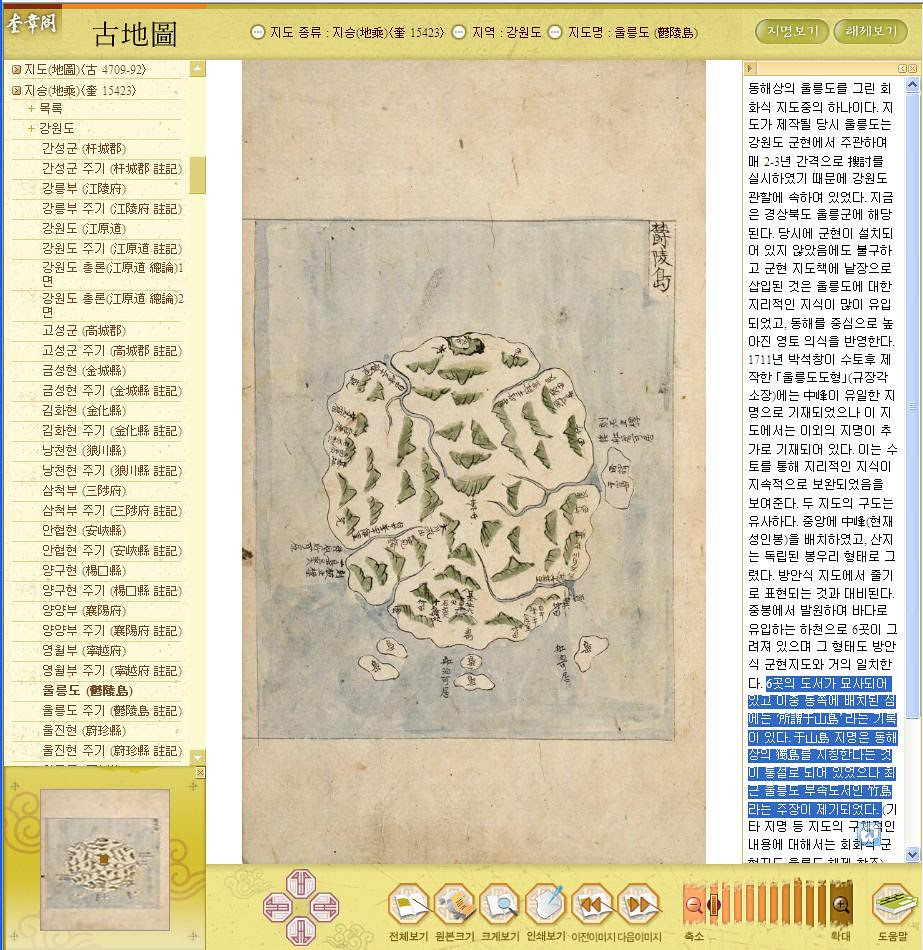 奎章閣
古地圖
지도 종류 : 지승(地乘)<奎 15423>
지역 : 강원도
지도명 : 울릉도 (鬱陵島)
지명보기
해제보기
지도(地圖)<古 4709-92>
지승(地乘)<奎 15423>
목록
강원도
간성군 (杆城郡)
간성군 주기 (杆城郡 註記)
강릉부 (江陵府)
강릉부 주기 (江陵府 註記)
강원도 (江原道)
강원도 주기 (江原道 註記)
강원도 총론(江原道 總論)1
면
강원도 총론(江原道 總論)2
면
고성군 (高城郡)
고성군 주기 (高城郡 註記)
금성현 (金城縣)
금성현 주기 (金城縣 註記)
김화현 (金化縣)
김화현 주기 (金化縣 註記)
낭천현 (狼川縣)
낭천현 주기 (狼川縣 註記)
삼척부 (三陟府)
삼척부 주기 (三陟府 註記)
안협현 (安峽縣)
안협현 주기 (安峽縣 註記)
양구현 (楊口縣)
양구현 주기 (楊口縣 註記)
양양부 (襄陽府)
양양부 주기 (襄陽府 註記)
영월부 (寧越府)
영월부 주기 (寧越府 註記)
울릉도 (鬱陵島)
울릉도 주기 (鬱陵島 註記)
울진현 (蔚珍縣)
울진현 주기 (蔚珍縣 註記)
鬱陵島
동해상의 울릉도를 그린 회
화식 지도중의 하나이다. 지
도가 제작될 당시 울릉도는
강원도 군현에서 주관하여
매 2-3년 간격으로 搜討를
실시하였기 때문에 강원도
관할에 속하여 있었다. 지금
은 경상북도 울릉군에 해당
된다. 당시에 군현이 설치되
어 있지 않았음에도 불구하
고 군현 지도책에 낱장으로
삽입된 것은 울릉도에 대한
지리적인 지식이 많이 유입
되었고, 동해를 중심으로 높
아진 영토 의식을 반영한다.
1711년 박석창이 수토후 제
작한 「울릉도도형」(규장각
소장)에는 中峰이 유일한 지
명으로 기재되었으나 이 지
도에서는 이외의 지명이 추
가로 기재되어 있다. 이는 수
토를 통해 지리적인 지식이
지속적으로 보완되었음을
보여준다. 두 지도의 구도는
유사하다. 중앙에 中峰(현재
성인봉)을 배치하였고, 산지
는 독립된 봉우리 형태로 그
렸다. 방안식 지도에서 줄기
로 표현되는 것과 대비된다.
중봉에서 발원하여 바다로
유입하는 하천으로 6곳이 그
려져 있으며 그 형태도 방안
식 군현지도와 거의 일치한
다. 6곳의 도서가 묘사되어
있고 이중 동쪽에 배치된 섬
에는 '所謂于山島'라는 기록
이 있다. 于山島 지명은 동해
상의 獨島를 지칭한다는 것
이 통설로 되어 있었으나 최
근 울릉도 부속도서인 竹島
라는 주장이 제기되었다. (기
타 지명 등 지도의 구체적인
내용에 대해서는 회화식 군
현지도 울릉도 해제 참조)
전체보기
원본크기
크게보기
인쇄보기
이전이미지
다음이미지
축소
확대
도움말